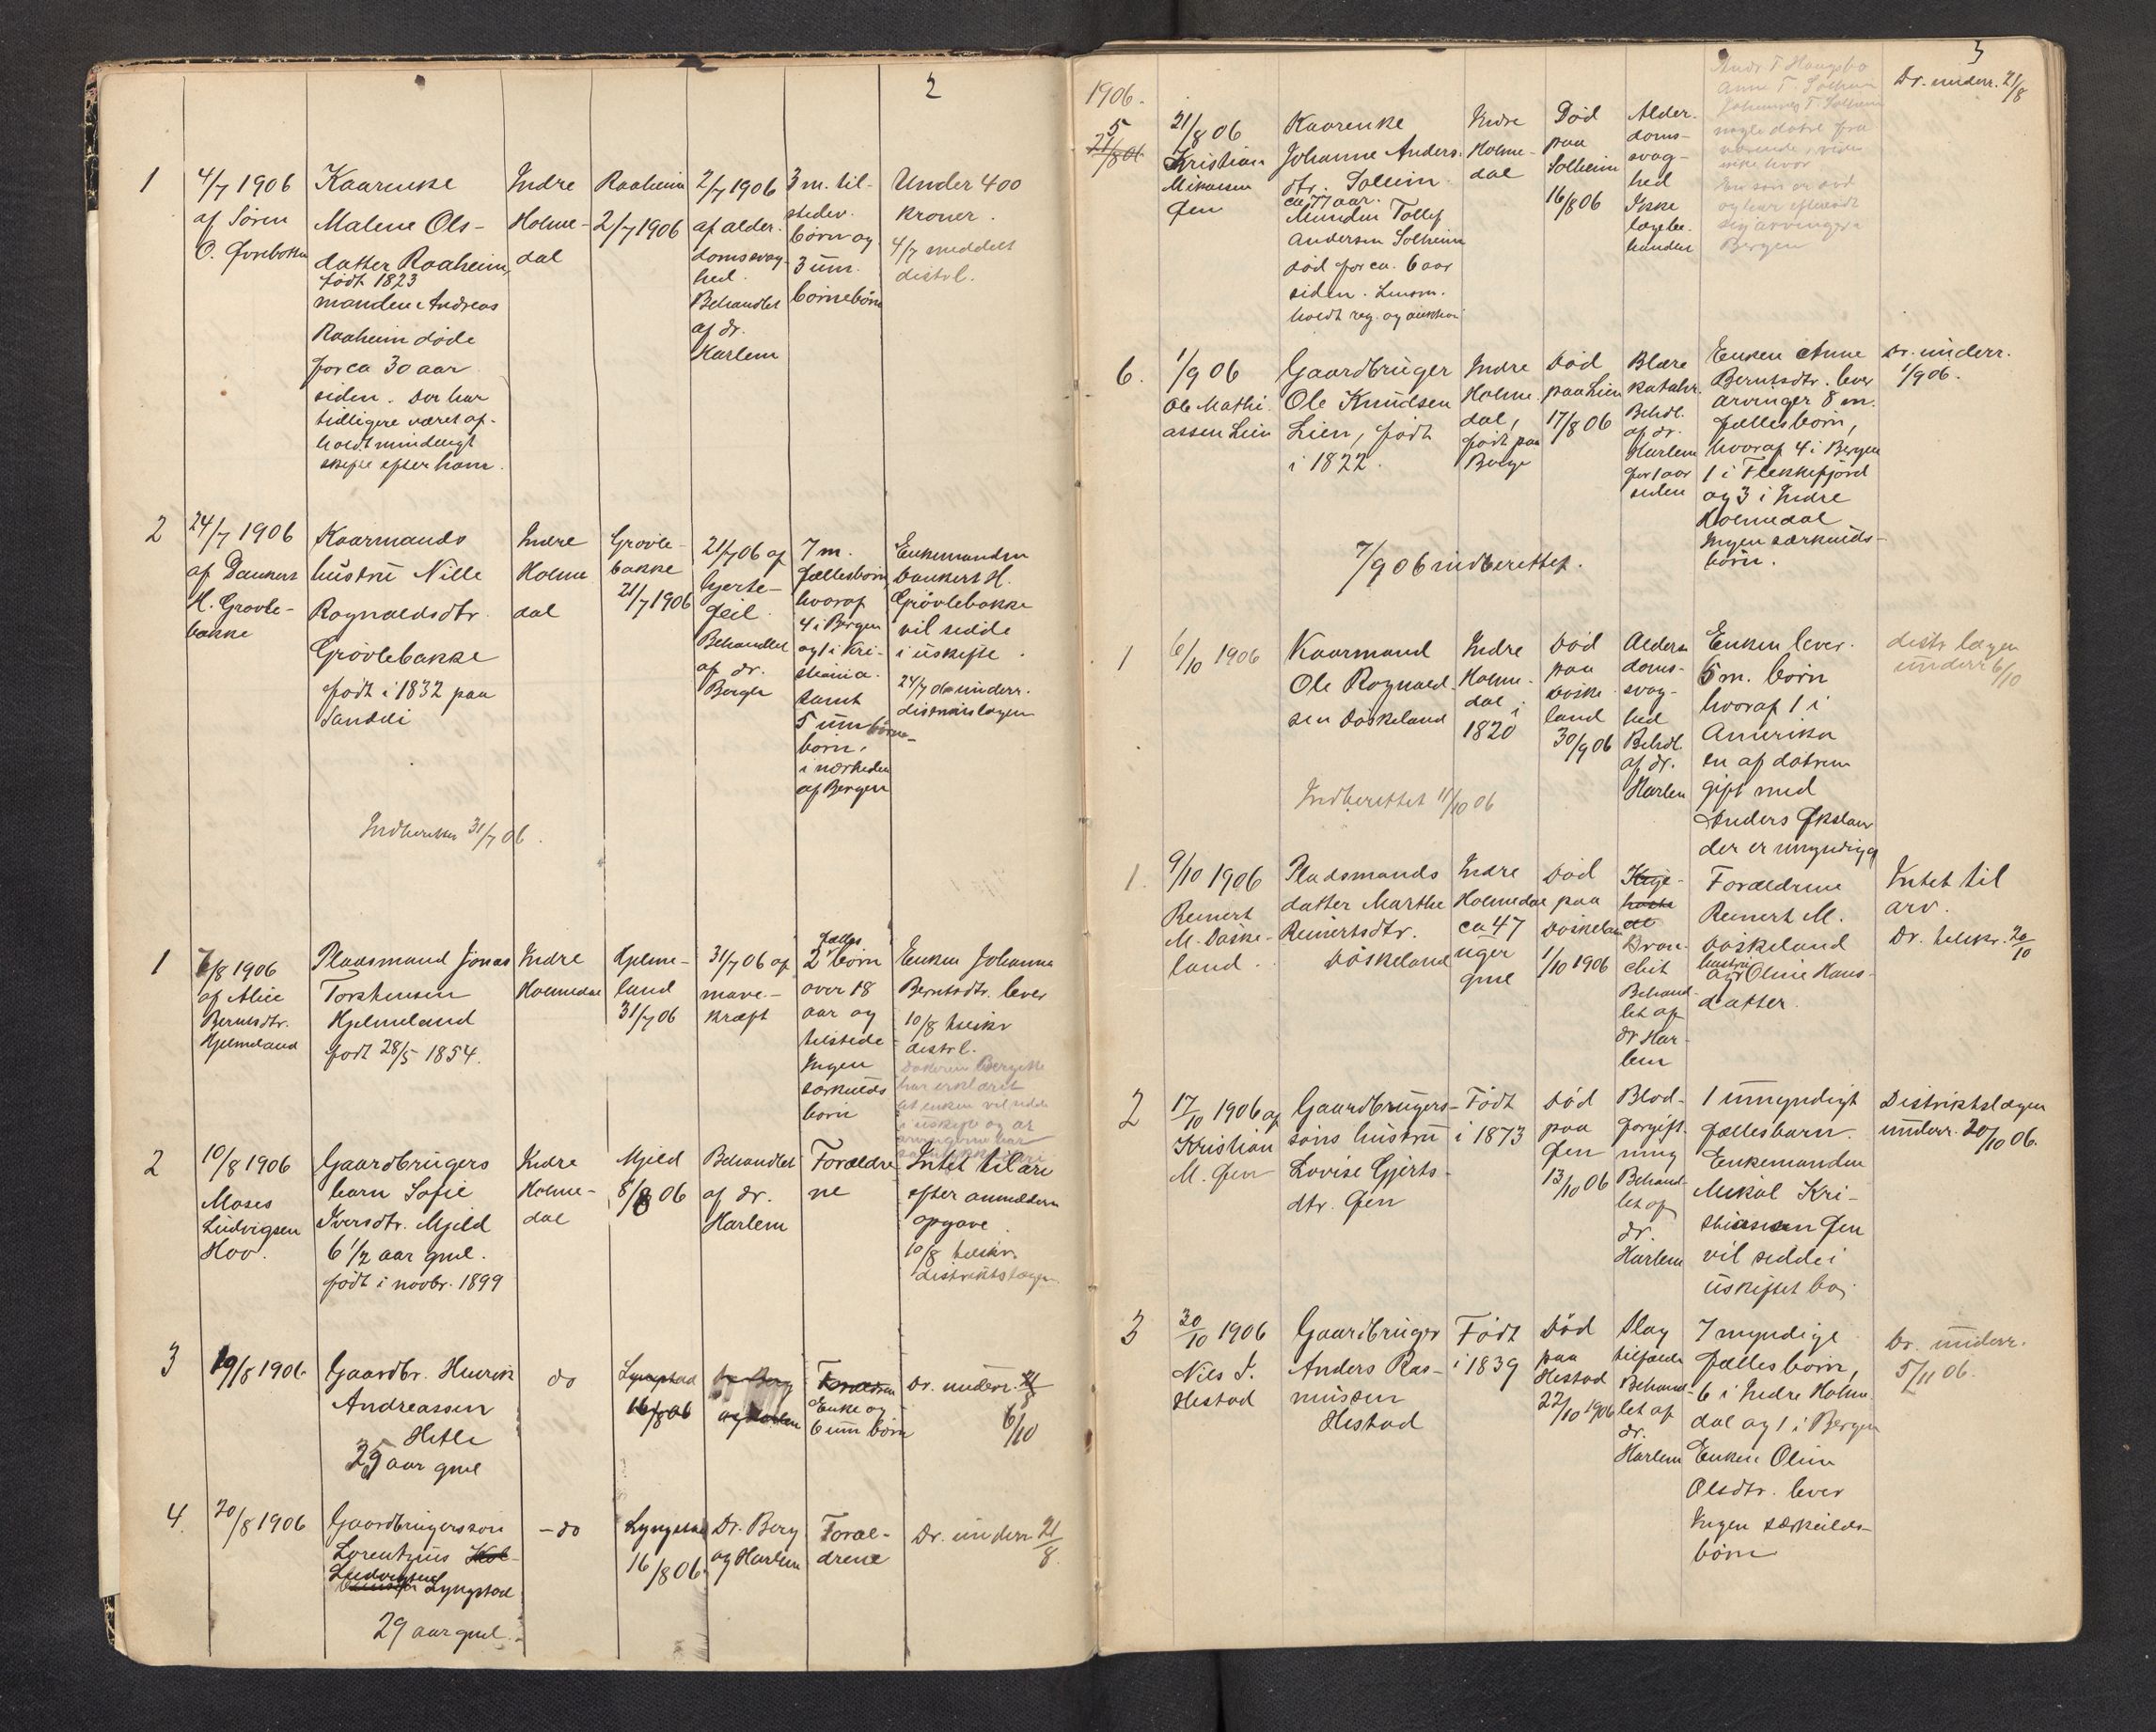 2
1
4/7 1906
af Søren
O.
Kaarenke
Malene Ols-
datter Raaheim,
født 1823
manden Andreas
Raaheim døde
for ca 30 aar
siden. Der har
tidligere været af-
holdt mindeligt
skifte efter ham.
Indre
Holme-
dal
Raaheim
2/7 1906
2/7 1906
af alder-
domssvag-
hed.
Behandlet
af dr.
Harlem
3 m. til-
stedev.
børn og
3 um.
børnebørn
Under 400
kroner.
4/7 meddelt
distrl.
2
24/7 1906
af Dankert
H. Grovle-
bakke
Kaarmands
hustru Nille
Ragnaldsdtr.
Grøvlebakke
født i 1832 paa
Sandei
Indre
Holme
dal
Grovle-
bakke
21/7 1906
21/7 06 af
hjerte-
feil
Behandlet
af dr.
Berger
7 m.
fællesbørn
hvoraf
4 i Bergen
og 1 i Kri-
stiania.
samt
5 um børne-
børn.
i nærheden
af Bergen
Enkemanden
Dankert H.
Grøvlebakke
vil sidde
i uskifte.
24/7 06 underr.
distriktslægen
Indberettet 31/7 06.
1
7/8 1906
af Alice
Berntsdtr.
Hjelmeland
Pladsmand Jonas
Torstensen
Hjelmeland
født 28/5 1854.
Indre
Holmedal
Hjelme-
land
31/7 06
31/7 06 af
mave-
kræft
fælles
2 børn
over 18
aar og
tilstede
Ingen
særkulds
børn
Enken Johanna
Berntsdtr. lever
10/8 tilskr
distrl.
har erklæret
at enken vil sidde
i uskifte og at
arvingerne har
2
10/8 1906
Moses
Ludvigsen
Hov.
Gaardbrugers
barn Sofie
Iversdtr. Mjeld
6 1/2 aar gml.
født i novbr. 1899
Indre
Holme-
dal
Mjeld
8/8 06
Behandlet
af dr.
Harlem
Forældre
ne
Intet til arv
efter anmelderen
opgave.
10/8 tilskr.
distriktslægen
3
19/8 1906
Gaardbr. Henrik
Andreassen
Hetle
35 aar gml
do
Lyngstad
16/8 06
Dr. Berg
og Harlem
Forældrene
Enke og
6 um børn
Dr. underr. 21/8
6/10
4
20/8 1906
Gaardbrugersøn
Lorentzius
Ludvigsen
Lyngstad
29 aar gml.
- do
Lyngstad
16/8 06
Dr. Berg
og Harlem
Foræl-
drene
Dr. underr 21/8
3
1906.
5
21/8 06
21/8 06
Kristian
Mikalsen
Gjen
Kaarenke
Johanne Anders.
dtr. Solheim.
ca 77 aar.
Manden Tollef
Andersen Solheim
død for ca. 6 aar
siden. Lensm.
holdt reg. og auktion
Indre
Holme-
dal
Død
paa
Solheim
16/8 06
Alder-
doms-
svag-
hed
Ikke
lægebe-
handlet
Anne T. Solheim
Johannes T. Solheim
nogle døtre fra
værende, viden
ikke hvor
En søn er død
og har efterladt
sig arvinger i
Bergen
Dr. underr. 21/8
6.
1/9 06
Ole Mathi-
assen Lien
Gaardbruger
Ole Knudsen
Lien, født
i 1822.
Indre
Holme
dal,
født paa
Død
paa Lien
17/8 06
Blære
katahr.
Behdl.
af dr.
Harlem
for 1 aar
siden
Enken Anne
Berntsdtr. lever
arvinger 8 m.
fællesbørn,
hvoraf 4 i Bergen
1 i Flekkefjord
og 3 i Indre
Holmedal
Ingen særkulds-
børn.
Dr. underr.
1/9 06.
7/9 06 indberettet.
1
6/10 1906
Kaarmand
Ole Ragnald-
sen Døskeland
Indre
Holme-
dal i
1820
Død
paa
Døske-
land
30/9 06
Alderen
doms-
svag-
hed
Behdl.
af dr.
Harlem
Enken lever.
5 m. børn
hvoraf 1 i
Amerika
en af døtrene
gift med
Anders
der er umyndigg
distr lægen
underr 6/10
Indberettet 11/10 06
1.
9/10 1906
Reinert
M. Døske-
land.
Pladsmands
datter Marthe
Reinertsdtr.
Døskeland
Indre
Holmedal
ca 47
uger
gml
Død
paa
Døskeland
1/10 1906
Kig-
hoste
Bron-
chit
Behand-
let af
dr Har-
lem
Forældrene
Reinert M.
Døskeland
hustru
og Oline Hans-
datter.
Intet til
arv.
Dr. tilskr. 20/10
2
17/10 1906 af
Kristian
M. Gjen
Gaardbrugers-
søns hustru
Lovise Gjerts-
dtr. Gjen
Født
i 1873
Død
paa
Gjen
13/10 06
Blod-
forgift-
ning
Behand-
let af
dr.
Harlem
1 umyndigt
fællesbarn.
Enkemanden
Mikal Kri-
stiansen Gjen
vil sidde i
uskiftet bo.
Distriktslægen
underr. 20/10 06.
3
30/10 1906
Nils J.
Hestad
Gaardbruger
Anders Ras-
mussen
Hestad
Født
i 1839
Død
paa
Hestad
22/10 1906
Slag
tilfælde
Behand-
let af
dr.
Harlem
7 myndige
fællesbørn,
6 i Indre Holme
dal og 1 i Bergen
Enken Oline
Olsdtr. lever
Ingen særkulds-
børn
Dr. underr.
5/11 06.